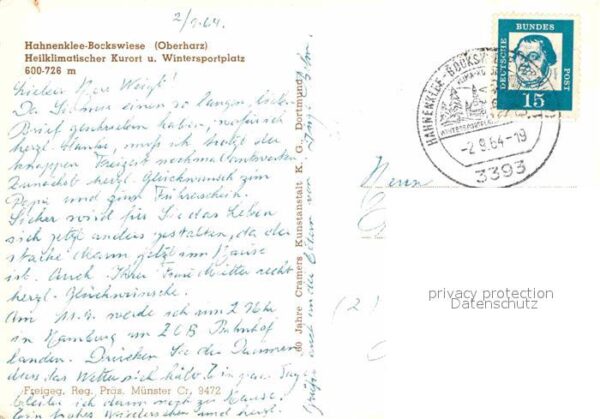 2/9.64.
Hahnenklee-Bockswiese (Oberharz)
Heilklimatischer Kurort u. Wintersportplatz
600-726 m
Lieber Herr Weigl!
Da Sie mir einen so langen, lieben
Brief geschrieben haben, wofür ich
herzl. danke, muß ich trotz der
knappen Freizeit nochmal antworten
Zunächst herzl. Glückwunsch zum
Papa und zum Führerschein.
Sicher wird für Sie das Leben
sich jetzt anders gestalten, da der
jetzt im Hause
ist. Auch Ihrer Frau Mutter recht
herzl. Glückwünsche.
Am 11.9. werde ich um 2 Uhr
in Hamburg am ZOB Bahnhof
landen. Drücken Sie die Daumen
das Wetter sich hält
bleibe ich dann noch zu Hause.
frohes Wiedersehen und herzl.
Grüße auch an die Eltern von
Freigeg. Reg. Präs. Münster Cr. 9472
60 Jahre Cramers Kunstanstalt K. G., Dortmund
DEUTSCHE
BUNDES
POST
15
HAHNENKLEE-BOCKS
WINTERSPORT
-2.9.64-19
3393
Herrn
(2)
privacy protection
Datenschutz